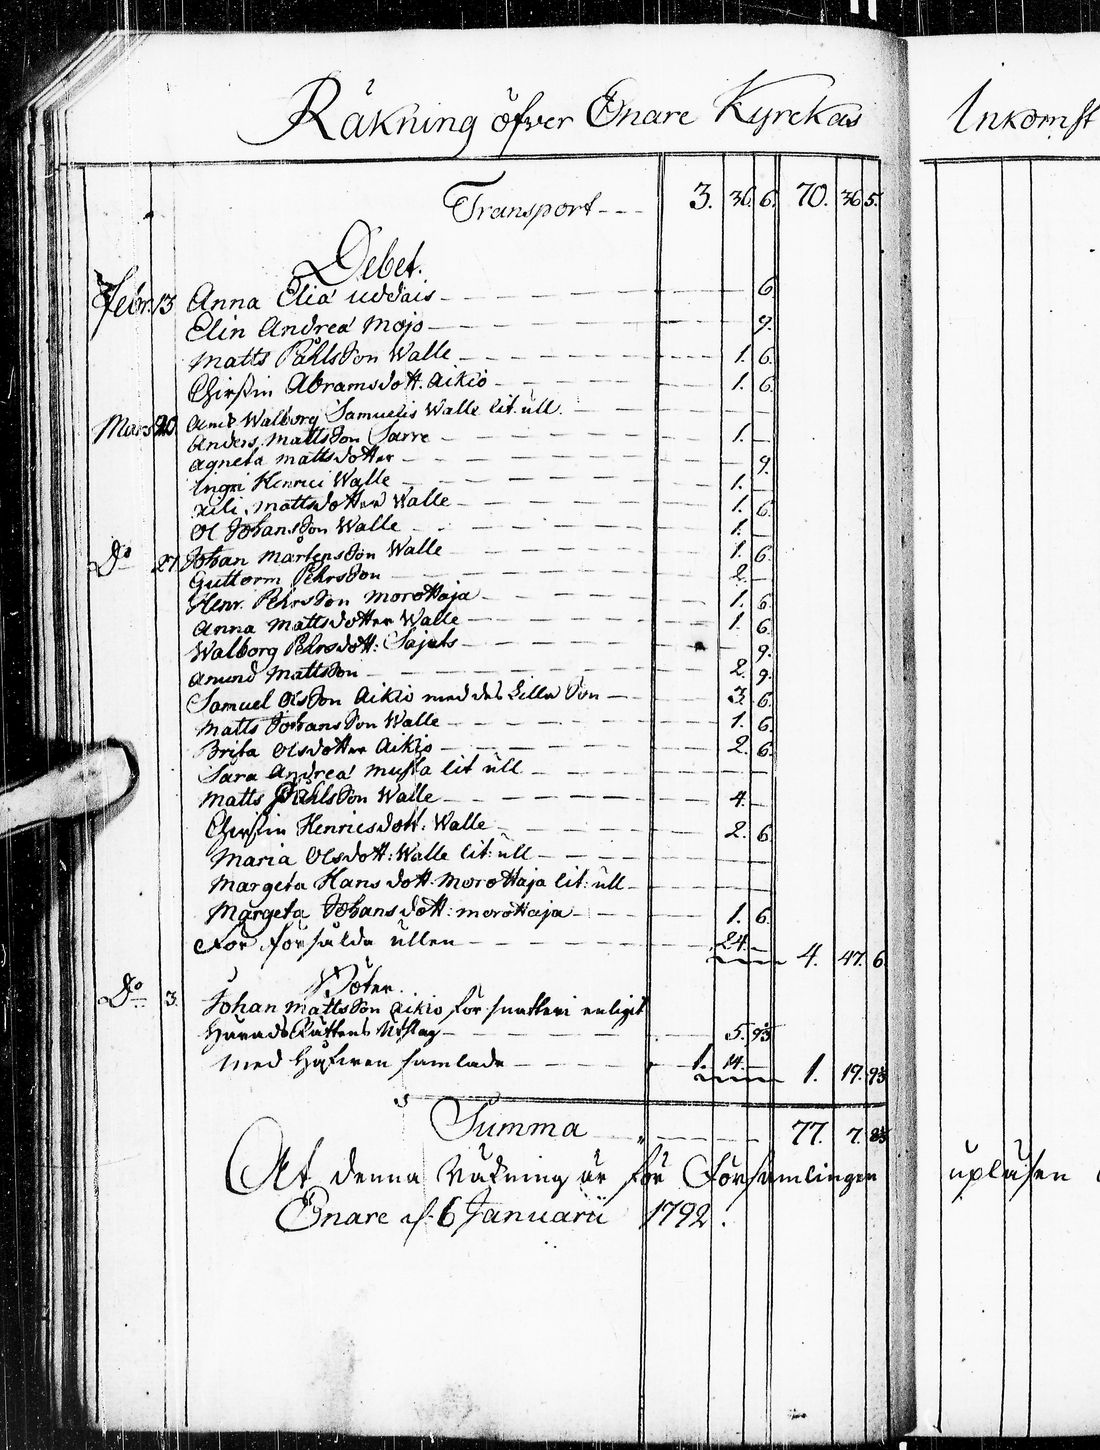 Räkning öfver Enare Kyrckas Inkomst
Transport --- 3. 36. 6. 70. 36 5.
Debet.
Febr: 13 Anna Elia Uddais - 6.
Elin Andrea Mojo - 9.
Matts Påhlsson Walle - 1. 6.
Chirstin Abramsdott. Aikio - 1. 6.
Mars 20. Walborg Samuelis Walle lit. ull.
Anders Mattsson Sarre - 1. -
Agneta Mattsdotter - 9.
Ingri Henrici Walle - 1. -
Mattsdotter Walle - 1. 6.
Ol Johansson Walle - 1. -
Do 27. Johan Mårtensson Walle - 1. 6.
Guttorm Pehrsson - 2. -
Henr. Pehrsson Morottaja - 1. 6.
Anna Mattsdotter Walle - 1. 6.
Walborg Pehrsdott: Sajets - 9.
Amund Mattsson - 2. 9.
Samuel Olsson Aikio med des Lilla Son - 3. 6.
Matts Johansson Walle - 1. 6.
Brita Olsdotter Aikio - 2. 6.
Sara Andrea Musta lit ull -
Matts Påhlsson Walle - 4. -
Chirstin Henricsdott: Walle - 2. 6.
Maria Olsdott: Walle lit: ull -
Margeta Hansdott. Morottaja lit: ull -
Margeta Johansdott: Morottaja - 1. 6.
För försålda ullen - 24. - 4. 47. 6.
Böter.
Do 3. Johan Mattsson Aikio för snatteri enligt
Härads Rättens Utslag - 5. 9⅗
Med Håfwen samlade - 1. 14. - 1. 19. 9⅗
Summa - 77. 7. 8⅗
At denna Räkning är för Församlingen upläsen
Enare d. 6 Januarii 1792.